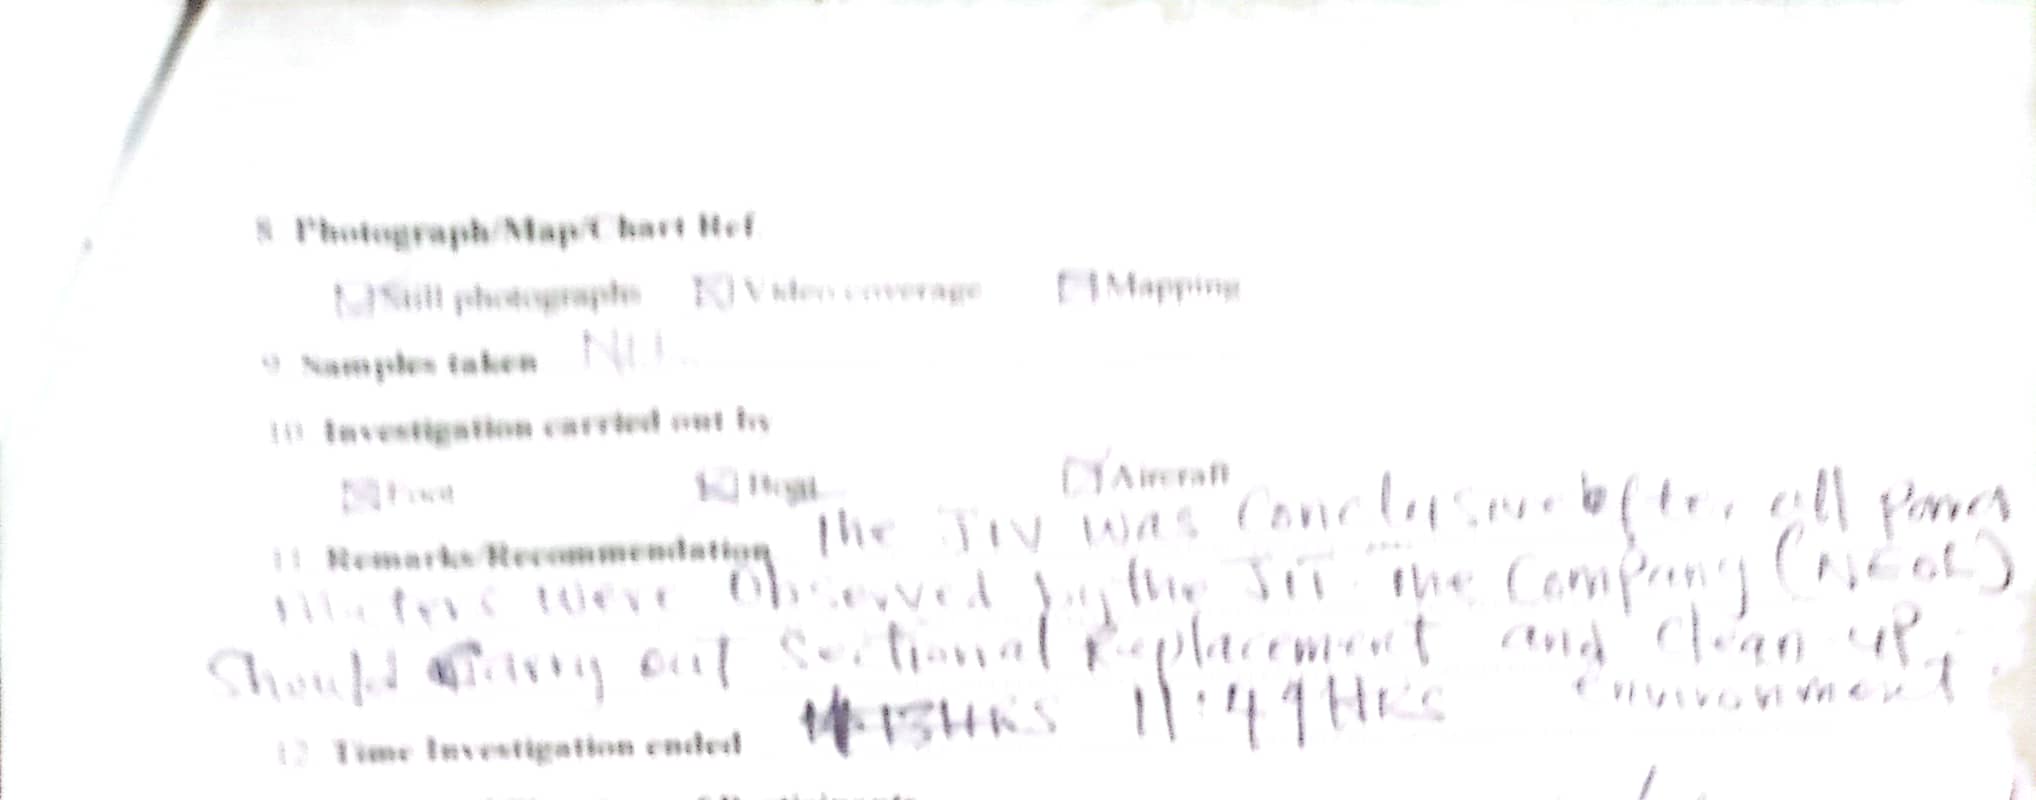 8 Photograph/Map/Chart Ref
Still photographs Video coverage Mapping
9 Samples taken NIL
10 Investigation carried out by
Foot Boat Aircraft
11 Remarks/Recommendation The JIV was Conclusive after all
were Observed by the JIT. The Company
Should Carry out Sectional Replacement and Clean up
environment.
12 Time Investigation ended 11:49HRS